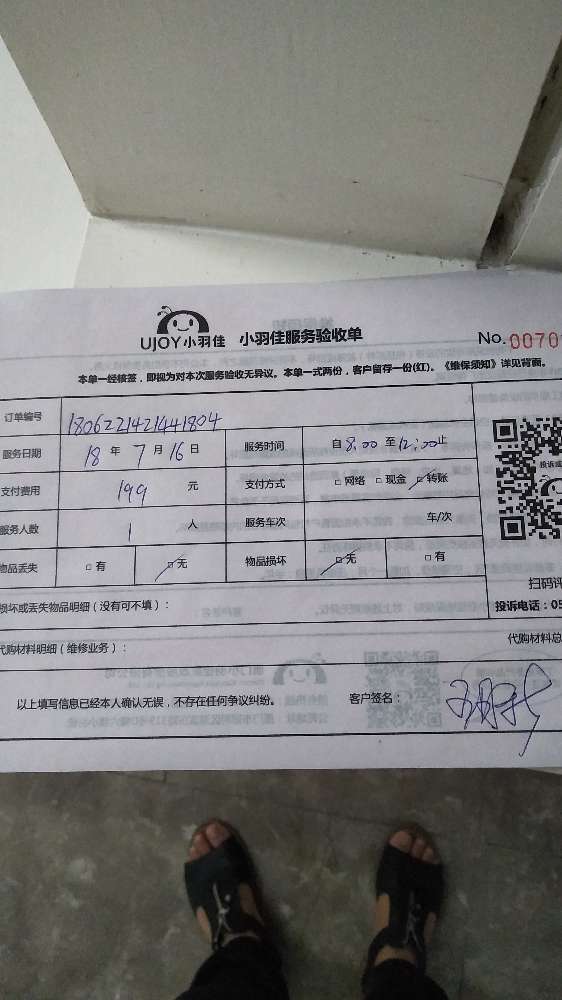 UJOY小羽佳 小羽佳服务验收单 No.0070
本单一经核签，即视为对本次服务验收无异议。本单一式两份，客户留存一份(红)。《维保须知》详见背面。
订单编号 1806221421441804
服务日期 18 年 7 月 16 日 服务时间 自 8:00 至 12:00 止
支付费用 199 元 支付方式 □ 网络 □ 现金 □ 转账
服务人数 1 人 服务车次 车/次
物品丢失 □ 有 □ 无 物品损坏 □ 无 □ 有
扫码评
损坏或丢失物品明细（没有可不填）： 投诉电话：05
代购材料明细（维修业务）： 代购材料总
以上填写信息已经本人确认无误，不存在任何争议纠纷。 客户签名：